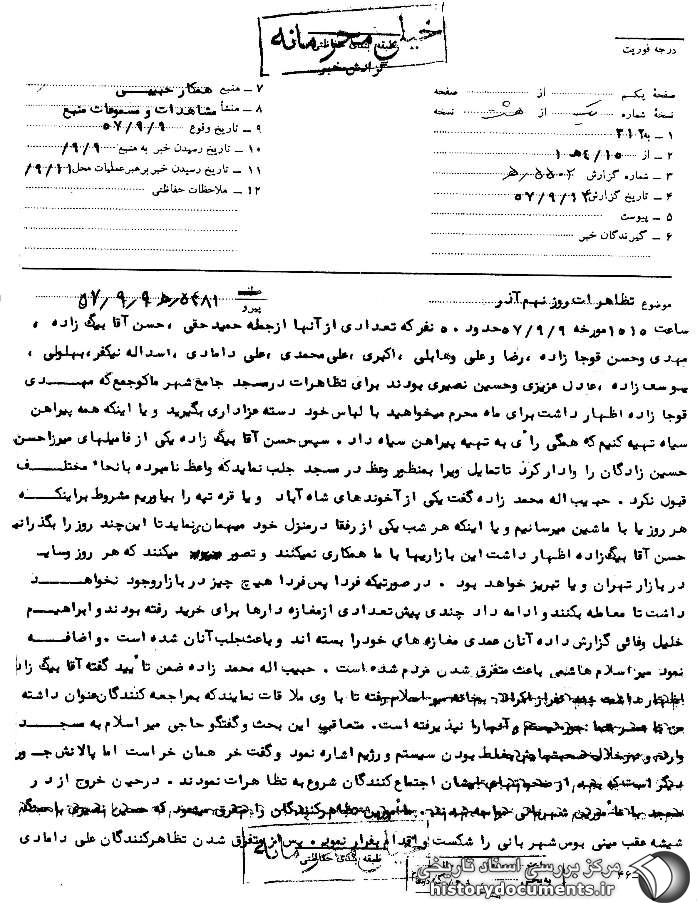 خیلی محرمانه
طبقه بندی حفاظتی
گزارش خبر
درجه فوریت
صفحه یکم از صفحه
نسخهٔ شماره یک از هشت نسخه
۱ – به ۳۱۲
۲ – از ۴/۱۵ ه ۱
۳ – شماره گزارش
۴ – تاریخ گزارش
۵ – پیوست
۶ – گیرندگان خبر
۷ – منبع همکار حبیبی
۸ – منشأ مشاهدات و مسموعات منبع
۹ – تاریخ وقوع ۵۷/۹/۹
۱۰ – تاریخ رسیدن خبر به منبع ۹/۹/
۱۱ – تاریخ رسیدن خبر برهبر عملیات محل ۹/۱۱/
۱۲ – ملاحظات حفاظتی
موضوع تظاهرات روز نهم آذر
پیرو ۵۷/۹/۹
ساعت ۱۵۱۵ مورخه ۵۷/۹/۹ حدود ۵۰ نفر که تعدادی از آنها از جمله حمید حقی ، حسن آقا بیگ زاده ،
مهدی وحسن قوجا زاده ، رضا و علی وهابلی ، اکبری ، علی محمدی ، علی دامادی ، اسداله نیکفر، بهلولی ،
یوسف زاده ، عادل عزیزی وحسین نصیری بودند برای تظاهرات در مسجد جامع شهر ماکو جمع که مهدی
قوجا زاده اظهار داشت برای ماه محرم میخواهید با لباس خود دسته عزاداری بگیرید و یا اینکه همه پیراهن
سیاه تهیه کنیم که همگی رأی به تهیه پیراهن سیاه داد . سپس حسن آقا بیگ زاده یکی از فامیلهای میرزا حسن
حسین زادگان را وادار کرد تا تمایل ویرا بمنظور وعظ در مسجد جلب نماید که واعظ نامبرده بانحاء مختلف
قبول نکرد . حبیب اله محمد زاده گفت یکی از آخوندهای شاه آباد و یا قره تپه را بیاوریم مشروط براینکه
هر روز یا با ماشین میرسانیم و یا اینکه هر شب یکی از رفقا در منزل خود میهمان نماید تا این چند روز را بگذرانیم
حسن آقا بیگ زاده اظهار داشت این بازاریها با ما همکاری نمیکنند و تصور میکنند که هر روز وسایل
در بازار تهران و یا تبریز خواهد بود . در صورتیکه فردا پس فردا هیچ چیز در بازار وجود نخواهد
داشت تا معامله بکنند و ادامه داد چندی پیش تعدادی از مغازه دارها برای خرید رفته بودند و ابراهیم
خلیل وفائی گزارش داده آنان عمدی مغازه های خود را بسته اند و باعث جلب آنان شده است . و اضافه
نمود میر اسلام هاشمی باعث متفرق شدن مردم شده است . حبیب اله محمد زاده ضمن تأیید گفته آقا بیگ زاده
اظهار داشت چند نفر رفته تا با وی ملاقات نمایند که بمراجعه کنندگان عنوان داشته
آنها را نپذیرفته است . متعاقب این بحث و گفتگو حاجی میر اسلام به مسجد
وارد و در خلال صحبتهایش بغلط بودن سیستم و رژیم اشاره نمود و گفت خر همان خر است اما پالانش جور
دیگر است که بعد از صحبتهای ایشان اجتماع کنندگان شروع به تظاهرات نمودند . در حین خروج از در
مسجد با مأمورین شهربانی مواجه شدند . مأمورین تظاهر کنندگان را متفرق مینمود که حسین نصیری با سنگ
شیشه عقب مینی بوس شهربانی را شکست و اقدام بفرار نمود . پس از متفرق شدن تظاهر کنندگان علی دامادی
خیلی محرمانه
طبقه بندی حفاظتی
مرکز بررسی اسناد تاریخی
historydocuments.ir